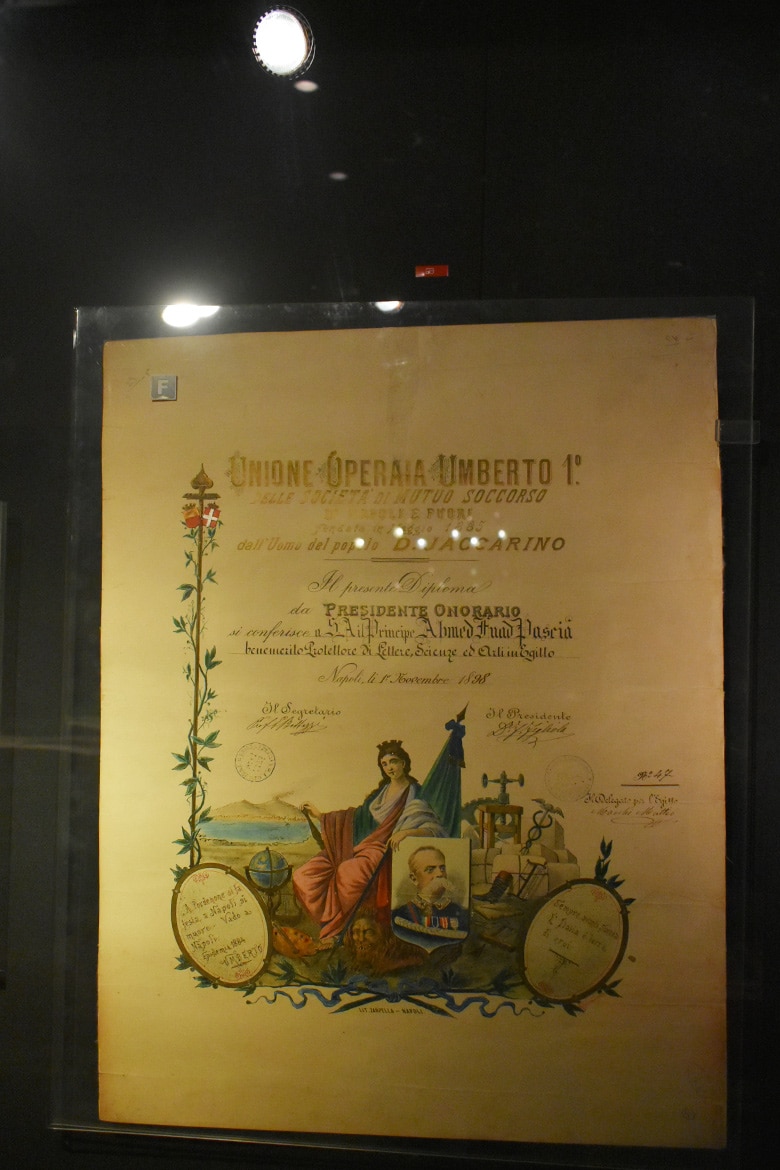 F
UNIONE OPERAIA UMBERTO 1º
DELLE SOCIETÀ DI MUTUO SOCCORSO
DI NAPOLI E FUORI
fondata in Maggio
dall'Uomo del popolo D. JACCARINO
Il presente Diploma
da PRESIDENTE ONORARIO
si conferisce a S.A il Principe Ahmed Fuad Pascià
benemerito Protettore di Lettere, Scienze ed Arti in Egitto
Napoli, li 1º Novembre 1898
Il Segretario
Il Presidente
Nº 47
Il Delegato per l'Egitto
A Pordenone si fa
festa, a Napoli si
muore. Vado a
Napoli.
1884
UMBERTO
LIT. ZARPELLA - NAPOLI